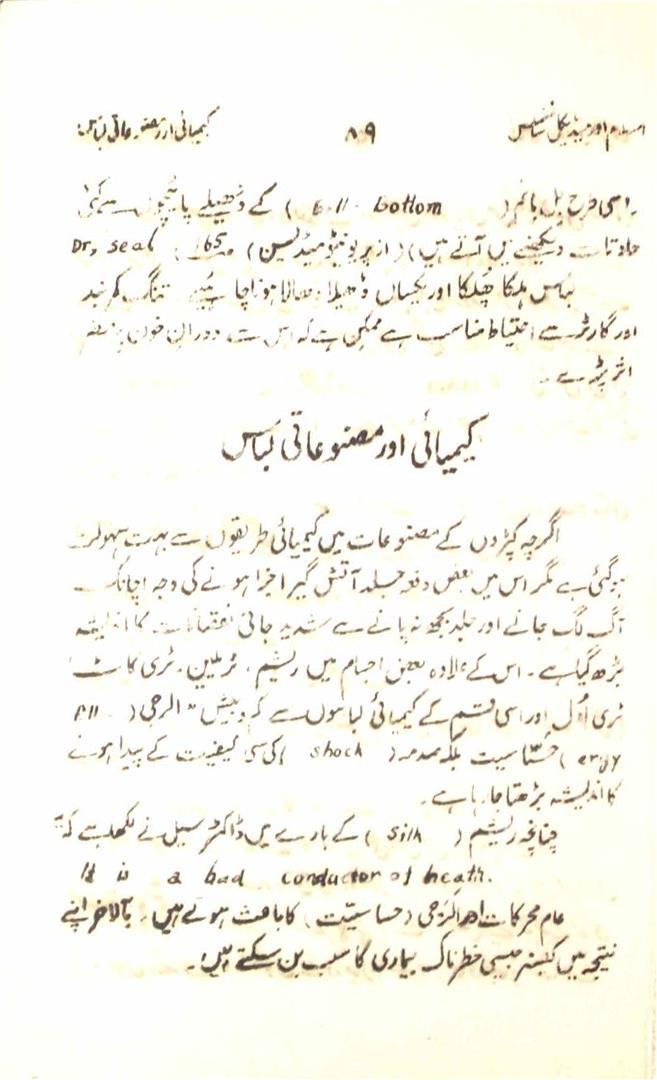 اسلام اور میڈیکل سائنس ۸۰۹ کیمیائی اور مصنوعاتی لباس
اسی طرح بل باٹم ( Bell bottom ) کے ڈھیلے پائنچوں سے کئی
حادثات دیکھنے میں آتے ہیں) (از پریونٹو میڈیسن) ص 165 Dr, Seal
لباس ہلکا پھلکا اور یکساں ڈھیلا ڈھالا ہونا چاہئیے تنگ کمر بند
اور گارٹر سے احتیاط مناسب ہے ممکن ہے کہ اس سے دوران خون پر مضر
اثر پڑے۔
کیمیائی اور مصنوعاتی لباس
اگرچہ کپڑوں کے مصنوعات میں کیمیائی طریقوں سے بہت سہولت
ہوگئی ہے مگر اس میں بعض دفعہ جلد آتش گیر اجزا ہونے کی وجہ اچانک
آگ لگ جانے اور جلد بجھ نہ پانے سے شدید جانی نقصانات کا اندیشہ
بڑھ گیا ہے۔ اس کے علاوہ بعض اجسام میں ریشم، ٹرلین، ٹری کاٹ
ٹری اوُل اور اسی قسم کے کیمیائی لباسوں سے کم وبیش "الرجی ( All
ergy ) حسّاسیت بلکہ صدمہ ( shock ) کی سی کیفیت کے پیدا ہونے
کا اندیشہ بڑھتا جارہا ہے۔
چنانچہ ریشم ( Silk ) کے بارے میں ڈاکٹر سیل نے لکھا ہے کہ
It is a bad conductor of heath.
عام محرکات اور الرجی (حساسیت) کا باعث ہوتے ہیں۔ بالآخر اپنے
نتیجہ میں کینسر جیسی خطرناک بیماری کا سبب بن سکتے ہیں۔